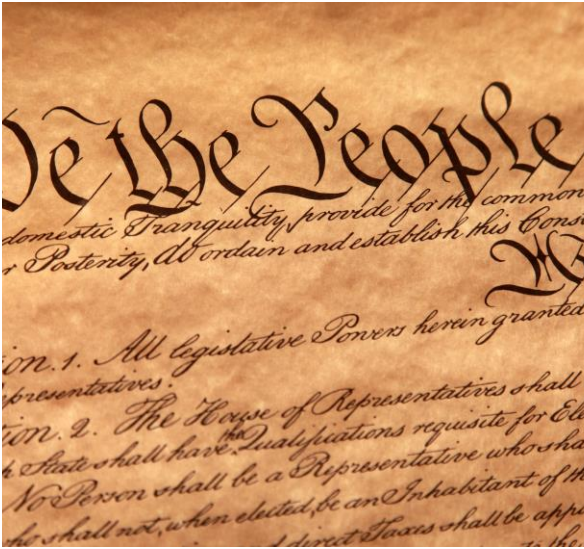 We the People
domestic Tranquility, provide for the common
r Posterity, do ordain and establish this Cons
ion. 1. All legislative Powers herein granted
presentatives.
ion. 2. The House of Representatives shall
h State shall have the Qualifications requisite for El
No Person shall be a Representative who sha
ho shall not, when elected, be an Inhabitant of th
direct Taxes shall be app
to the